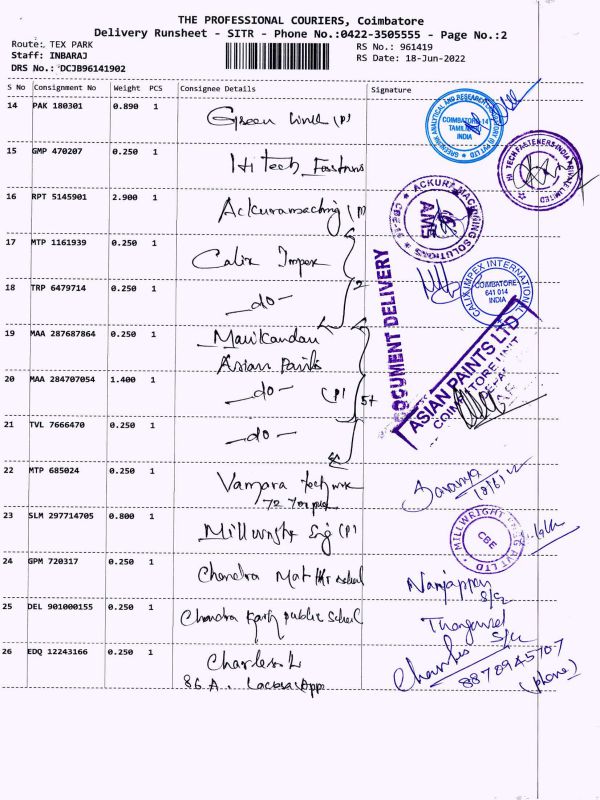 THE PROFESSIONAL COURIERS, Coimbatore
Delivery Runsheet - SITR - Phone No.:0422-3505555 - Page No.:2
Route: TEX PARK
Staff: INBARAJ
DRS No.: DCJB96141902
RS No.: 961419
RS Date: 18-Jun-2022
S No Consignment No Weight PCS Consignee Details Signature
14 PAK 180301 0.890 1 Green (P)
COIMBATORE-14
TAMILNADU
INDIA
15 GMP 470207 0.250 1 Hi Tech
HI TECH FASTENERS INDIA PRIVATE LIMITED
16 RPT 5145901 2.900 1 Ackuramachinig (P)
ACKURA MACHINING SOLUTIONS
AMS
17 MTP 1161939 0.250 1 Calix Impex
CALIX IMPEX INTERNATIONAL
COIMBATORE
641 014
INDIA
18 TRP 6479714 0.250 1 -do-
2
DOCUMENT DELIVERY
19 MAA 287687864 0.250 1 Manikandan
Asian Paints
ASIAN PAINTS LTD
20 MAA 284707054 1.400 1 -do- (P)
21 TVL 7666470 0.250 1 -do-
22 MTP 685024 0.250 1 Vampara
Saranya
18/6/22
23 SLM 297714705 0.800 1 Millwright Eng (P)
CBE
24 GPM 720317 0.250 1 Chandra Mat Hr School
Nanjappan
S/G
25 DEL 901000155 0.250 1 Chandra public School
Thangavel
S/G
26 EDQ 12243166 0.250 1 Charles. L
86 A.
Charles
8870945707
(phone)